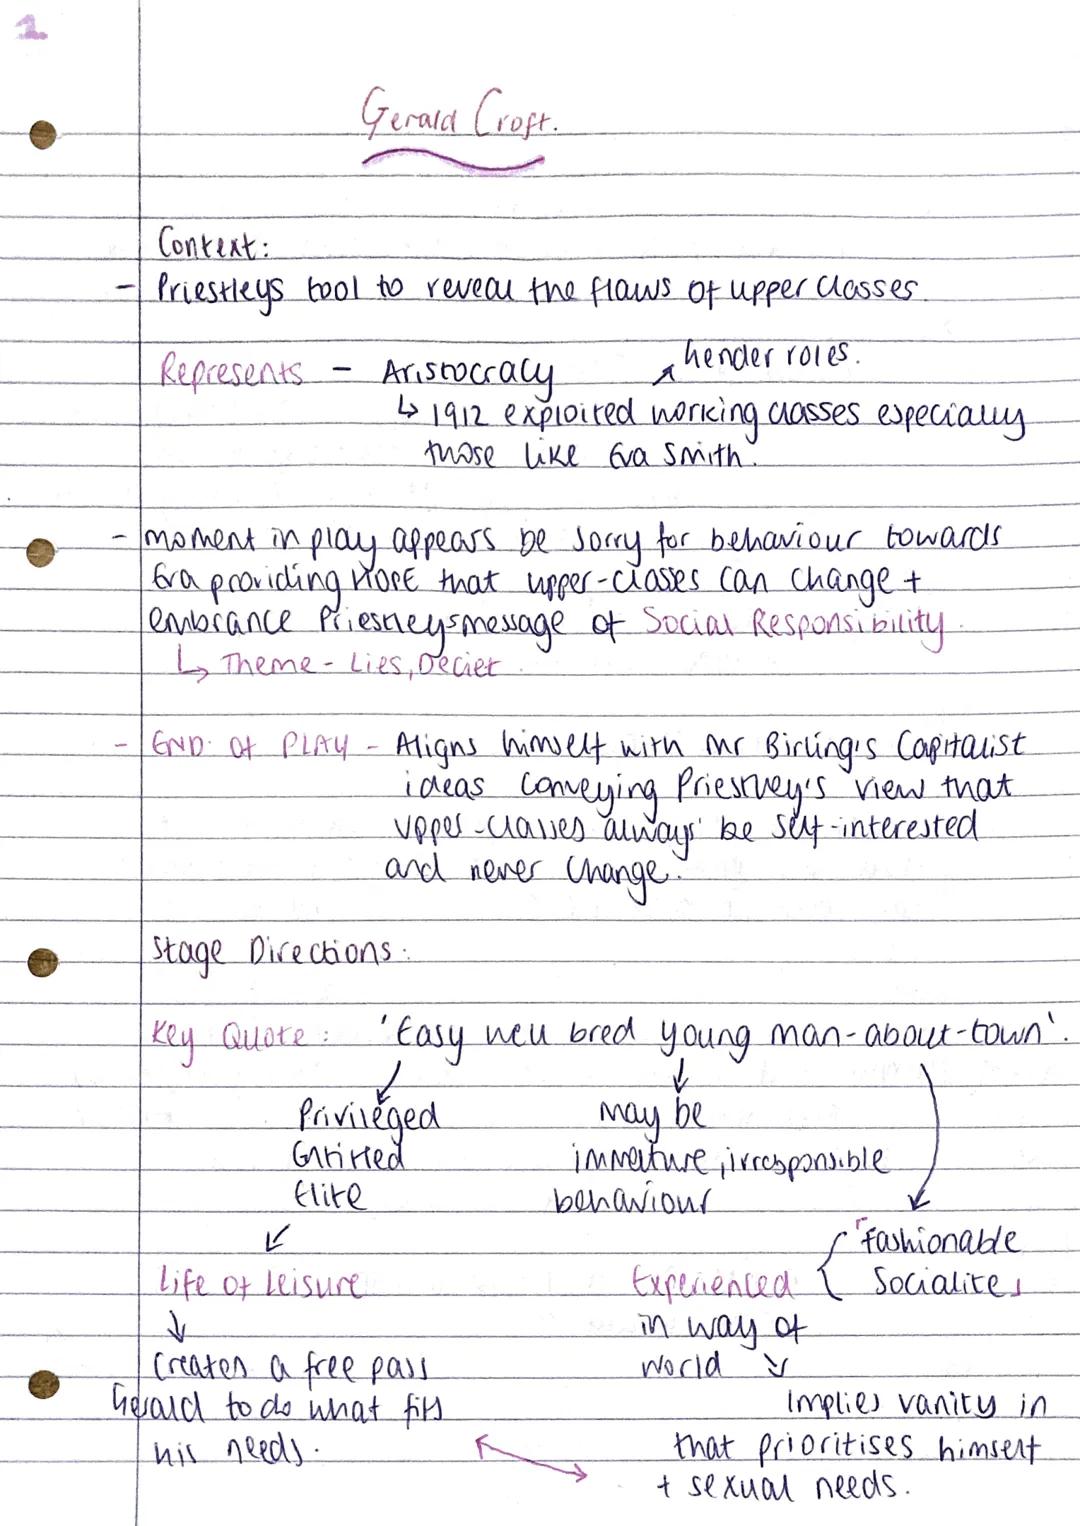 1
Gerald Croft.
Context:
- Priestleys tool to reveal the flaws of upper classes.
Gender roles.
Represents - Aristocracy ↗
↳ 1912 exploited working classes especially
those like Eva Smith.
- moment in play appears be sorry for behaviour towards
Eva providing HOPE that upper-classes can change +
embrance Priestleys message of Social Responsibility.
↳ Theme - Lies, Deciet.
- END OF PLAY - Aligns himself with Mr Birling's Capitalist
ideas conveying Priestley's view that
upper-classes always be self-interested
and never change.
Stage Directions:
Key Quote: 'Easy well bred young man-about-town'.
Privileged
Entitled
Elite
↙
Life of leisure
↓
Creates a free pass
Gerald to do what fits
his needs.
may be
immature, irresponsible
behaviour
"Fashionable
Socialites
Experienced {
in way of
world ↘
Implies vanity in
that prioritises himself
+ sexual needs.